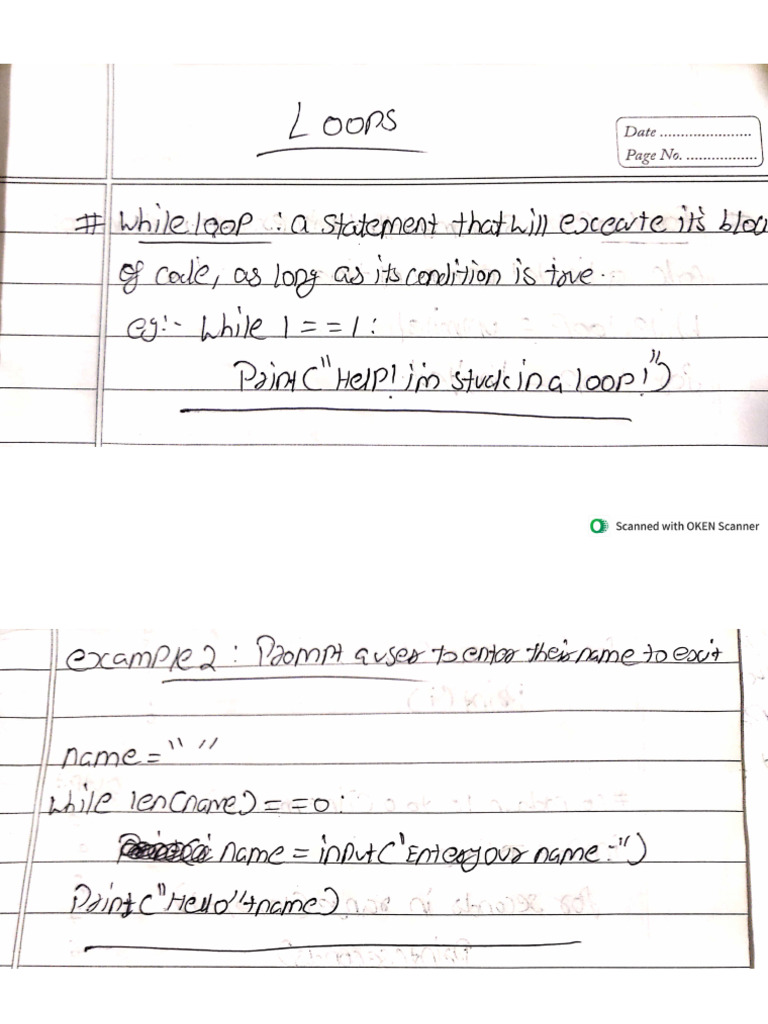 Loops
Date ......................
Page No. .................
# While loop : a statement that will excecute its bloc
of code, as long as its condition is true.
eg:- While 1 = = 1 :
Print ("Help! im stuck in a loop!")
Scanned with OKEN Scanner
example 2 : Prompt a user to enter their name to exit
name = " "
While len(name) = = 0 :
name = input("Enter your name :-")
Print("Hello"+name)